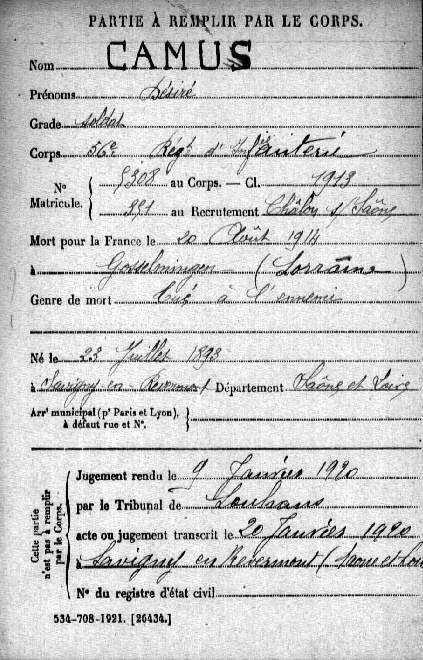 PARTIE À REMPLIR PAR LE CORPS.
Nom CAMUS
Prénoms Désiré
Grade soldat
Corps 56e Régt d'Infanterie
N° Matricule. { 5308 au Corps. — Cl. 1913
391 au Recrutement Châlon s/Saône
Mort pour la France le 20 Août 1914
à Gosselmingen (Lorraine)
Genre de mort Tué à l'ennemi
Né le 23 Juillet 1893
à Savigny en Revermont Département Saône et Loire
Arrt municipal (pr Paris et Lyon), à défaut rue et N°. }
Cette partie n'est pas à remplir par le Corps.
Jugement rendu le 9 Janvier 1920
par le Tribunal de Louhans
acte ou jugement transcrit le 20 Janvier 1920
à Savigny en Revermont (Saone et Loire
N° du registre d'état civil
534-708-1921. [26434.]